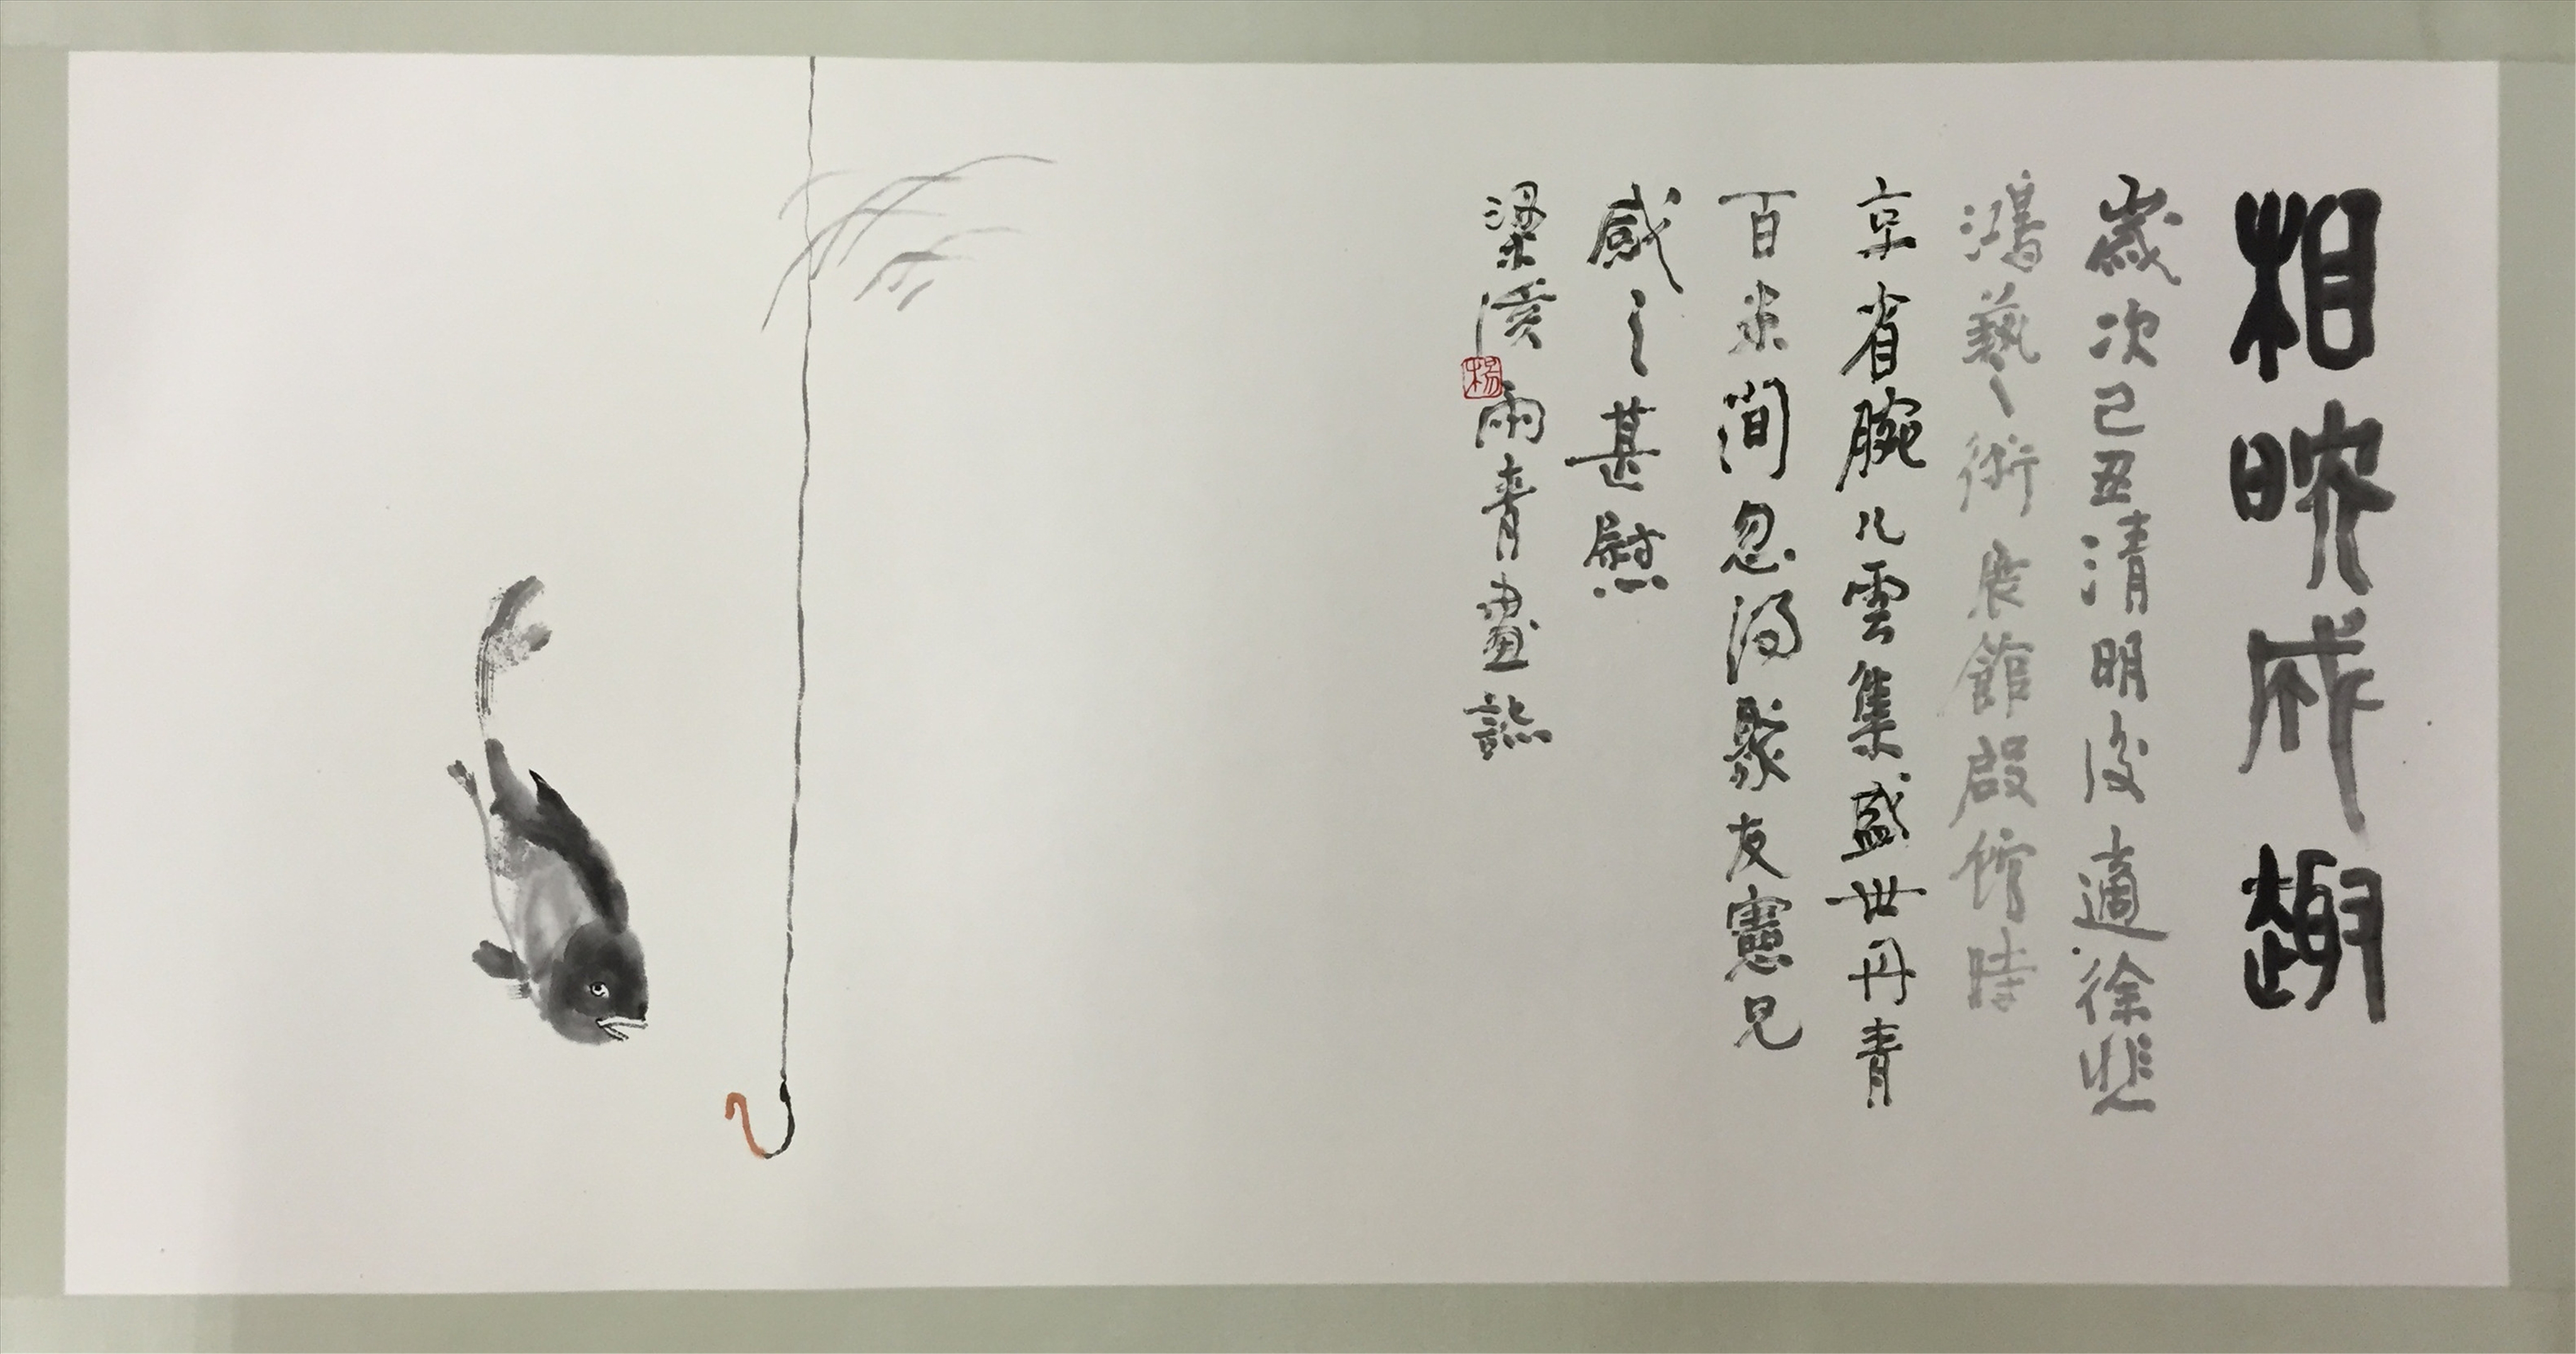 相映成趣
歲次己丑清明後適徐悲
鴻藝術展館啟館時
京省腕兒雲集盛世丹青
百米間忽得聚友憲兄
感之甚慰
梁溪雨青畫誌
楊